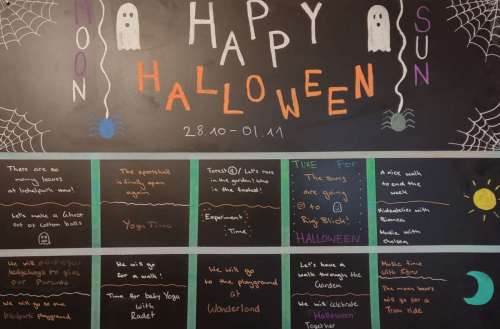 MOON
HAPPY
SUN
HALLOWEEN
28.10-01.11
There are so
many leaves
at
now!
Let's make a Ghost
out of Cotton balls
The sportshall
is finally open
again
Yoga Time
Forest / Let's race
in the garden! Who
is the fastest!
Experiment
Time
TIME FOR
The suns
are going
to
Ring Blick!
HALLOWEEN
A nice walk
to end the
week
with
Bianca
Music with
Chelsea
We will
to
our
We will go to the
playground
We will go
for a walk!
Time for baby Yoga
with
Radet
We will go
to the playground
at
Wonderland
Let's have a
walk through the
Garden
We will celebrate
Halloween
Together
Music time
with
The moon bears
will go for a
Tram ride